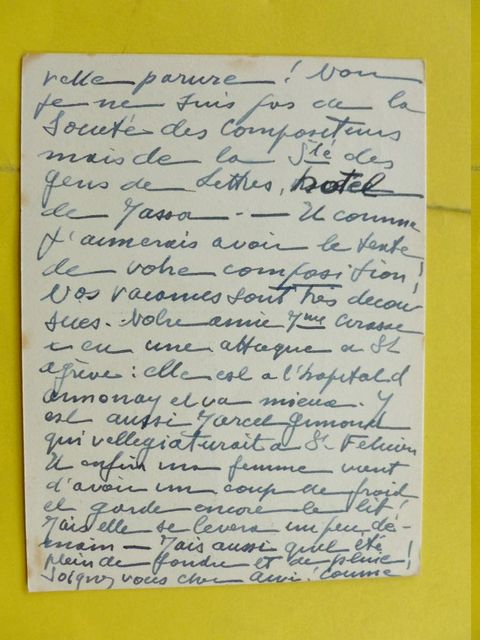 velle parure ! Non
je ne suis pas de la
Société des Compositeurs
mais de la Sté des
gens de Lettres, hotel
de Massa - — Et comme
j'aimerais avoir le texte
de votre composition !
Nos vacances sont très décou
sues. Votre amie Mme
a eu une attaque a St
agrève : elle est a l'hopital d
annonay et va mieux. Y
est aussi Marcel Gimond
qui villegiaturait a St Felicien
Et enfin ma femme vient
d'avoir un coup de froid
et garde encore le lit !
Mais elle se levera un peu de-
main — Mais aussi quel été
plein de foudre et de pluie !
Soignez vous cher ami ! Comme